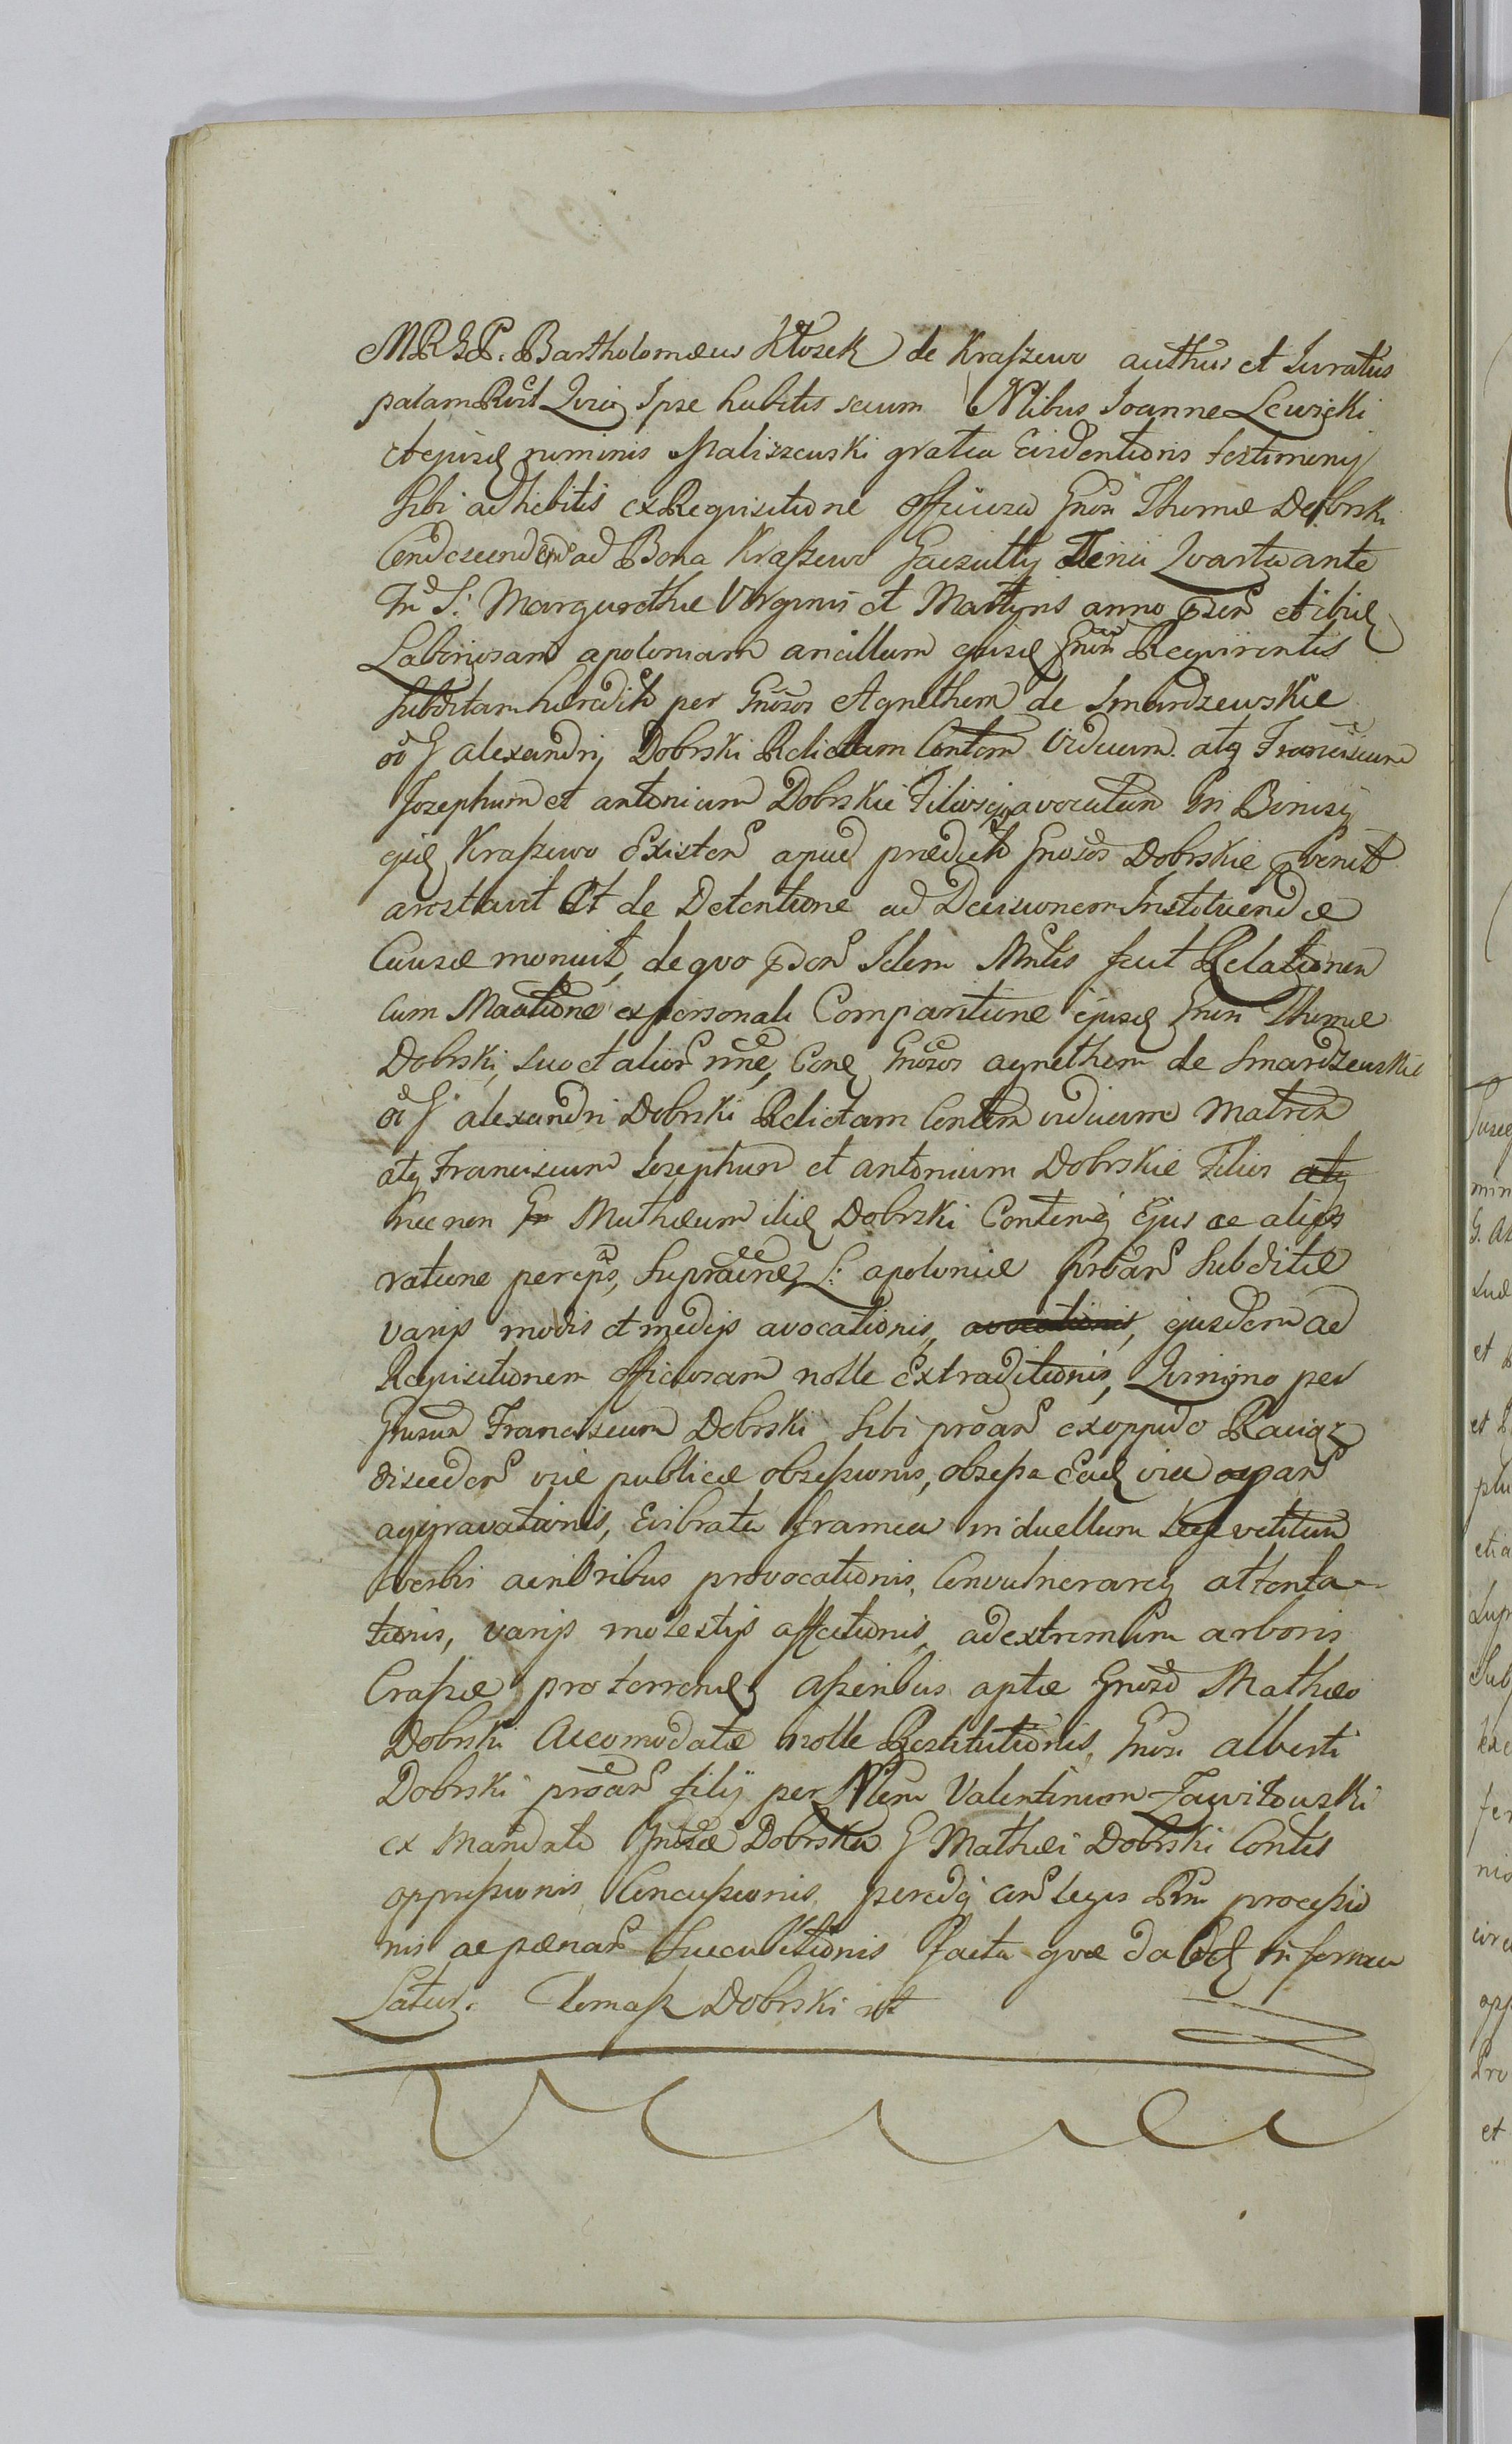 MRGP. Bartholomæus Kłosek de Kraszewo authus et Juratus
palam Rvit Quia Ipse habitis secum Nlibus Joanne Lewicki
et ejusd nominis Maliszewski gratia Evidentioris testimonij
Sibi adhibitis ex Requisitione officiosa Gnosi Thomæ Dobrski
Condescendend ad Bona Kraszewo Gaczułty Feria Quarta ante
Fm S: Margarethæ Virginis et Martyris anno pnti et ibid
Laboriosam apoloniam ancillam ejusd Gnosi Requirentis
Subditam hæredit per Gnosos Agnethem de Smardzewskie
G alexandri Dobrski Relictam Contem Viduam atq Franciscum
Josephum et antonium Dobrskie Filios avocatam In Bonis
Kraszewo Existen apud prædict Gnosos Dobrskie pvenit
arestavit Et de Detentione ad Decisionem Instituendæ
Causæ monuit, de quo Idem Mntis fecit Relationem
cum Maatione ex personali Comparitione ejusd Gnosi Thomæ
Dobrski, suo et alior nne, Con Gnosos agnethem de Smardzewskie
G alexandri Dobrski Relictam Contem viduam Matrem
atq Franciscum Josephum et antonium Dobrskie Filios atq
nec non Gn Mathæum Dobrski Contem Ejus ac alijs
ratione L: apoloniæ proan Subditæ
varijs modis et medijs avocationis, avocationis, ejusdem ad
Requisitionem officiosam nolle Extraditionis, Quinimo per
Gnosum Franciscum Dobrski Sibi proan ex oppido Raciąz
disceden viæ publicæ obsessionis, obsessa Ead via
aggravationis, Evibrata framea in duellum Lege vetitum
verbis acrioribus provocationis, Convulnerareq attenta-
tionis, varijs molestijs affectionis, ad extremum arboris
Crassæ pro asseribus aptæ Gnoso Mathæo
Dobrski Accomodatæ nolle Restitutionis, Gnosi alberti
Dobrski proan filij per Nlem Valentinum Zawitowski
ex Mandato Gnosæ Dobrska G Mathæi Dobrski Contis
oppressionis Concussionis legis Rni processio
nis ac pænar Succubitionis facta quæ in forma
Latius. Tomasz Dobrski